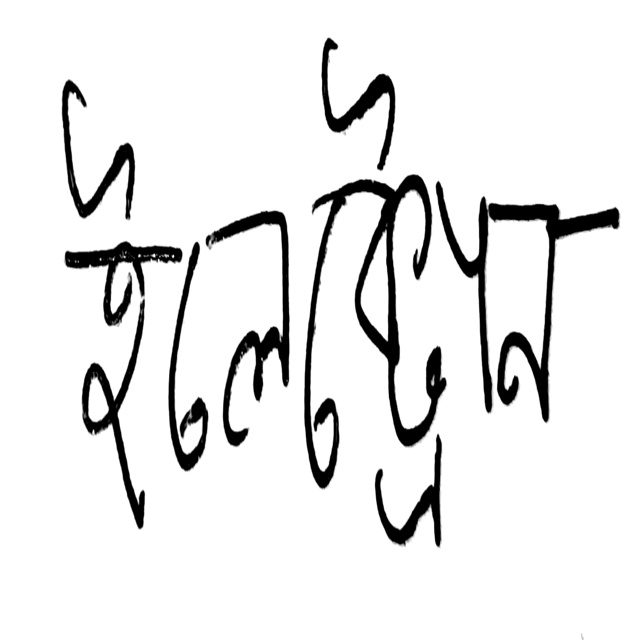 ইলেক্ট্রন